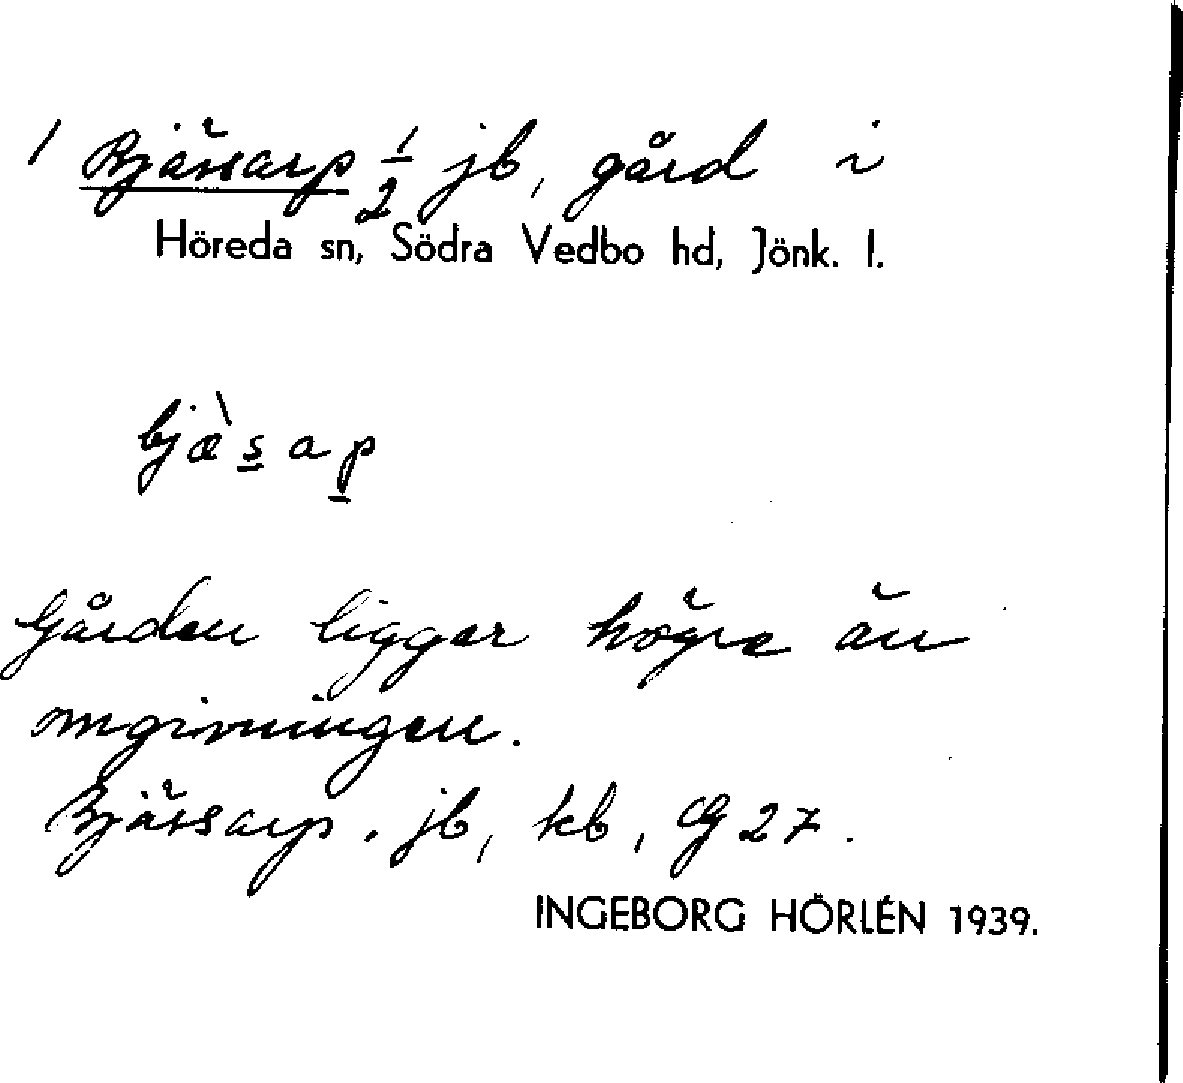 1 Bjässarp 1/2 jb, gård i
Höreda sn, Södra Vedbo hd, Jönk. l.
bjæ̀s̲ap̲
Gården ligger högre än
omgivningen.
Bjässarp. jb, kb, G 27.
INGEBORG HÖRLÉN 1939.